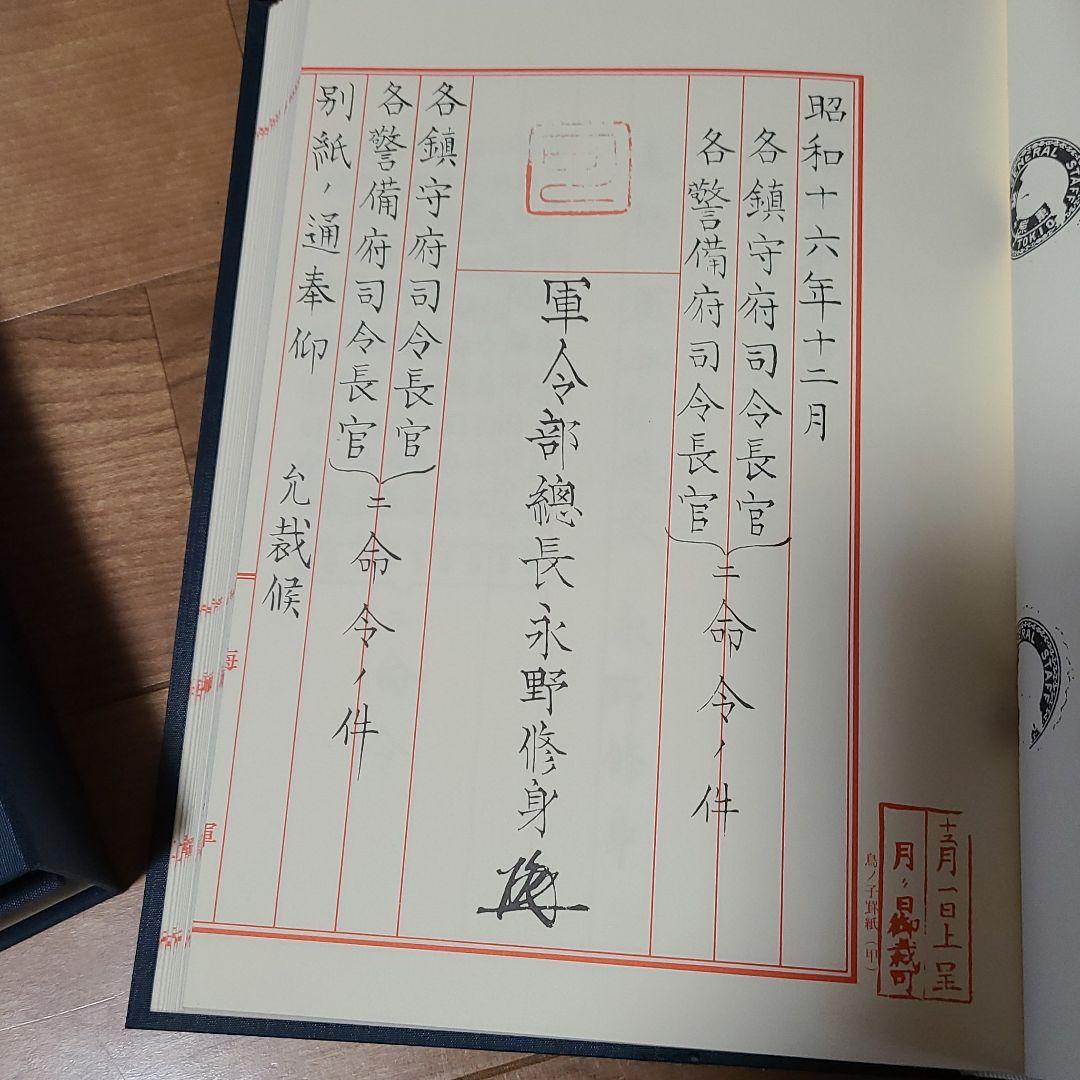 昭和十六年十二月
各鎮守府司令長官
各警備府司令長官
ニ命令ノ件
軍令部總長永野修身
各鎮守府司令長官
各警備府司令長官
ニ命令ノ件
別紙ノ通奉仰
允裁候
鳥ノ子罫紙(甲)
十二月一日上呈
月〃日御裁可
GENERAL STAFF
TOKIO
ERAL STAFF
海
軍